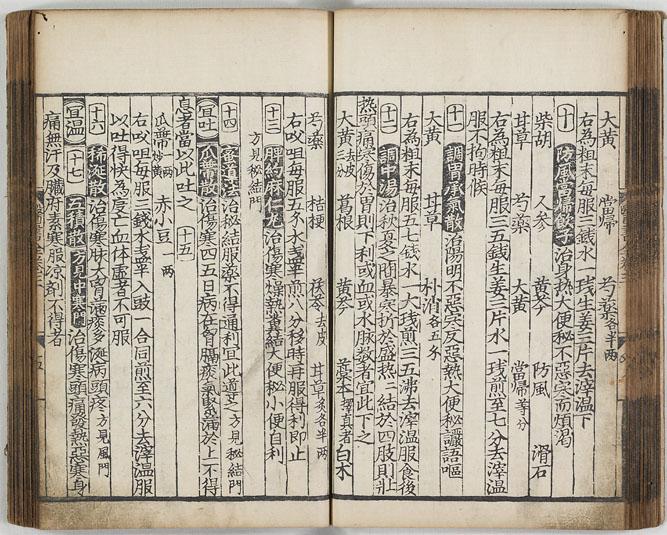 大黃 當歸 芍藥各半兩
右為粗末每服三錢水一琖生姜三片去滓溫下
十 防風當歸飲子 治身熱大便秘不惡寒而煩渴
柴胡 人參 黃芩 防風 滑石
甘草 芍藥 大黃 當歸等分
右為粗末每服三五錢生姜三片水一琖煎至七分去滓溫
服不拘時候
十一 調胃承氣散 治陽明不惡寒反惡熱大便秘讝語嘔
大黃 甘草 朴消各五分
右粗末每服五七錢水一大琖煎三五沸去滓溫服食後
十二 調中湯 治秋夏之間暴寒折於盛熱結於四肢則壯
熱頭痛寒傷於胃則下利或血或水脉數者宜此下之
大黃去皮 葛根 黃芩 藁本擇真者 白朮
芍藥 桔梗 茯苓去皮 甘草炙各半兩
右㕮咀每服五分水一琖煎八分移時再服得利即止
十三 脾約麻仁丸 治傷寒燥熱糞結大便秘小便自利
方見秘結門
十四 蜜導法 治秘結服藥不得通利宜此導之方見秘結門
宜吐 瓜蒂散 治傷寒四五日病在胷膈痰氣緊滿於上不得
息者當以此吐之 十五
瓜蔕炒黃 赤小豆一兩
右㕮咀每服三錢水一琖入豉一合同煎至六分去滓溫服
以吐得快為度亡血体虛者不可服
十六 稀涎散 治傷寒脉大胷滿痰多涎病頭疼方見風門
宜溫 十七 五積散方見中寒門 治傷寒頭痛發熱惡寒身
痛無汗及臟腑素寒服涼剤不得者